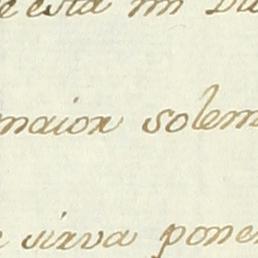 e esta mi
maior solem
sirva ponen